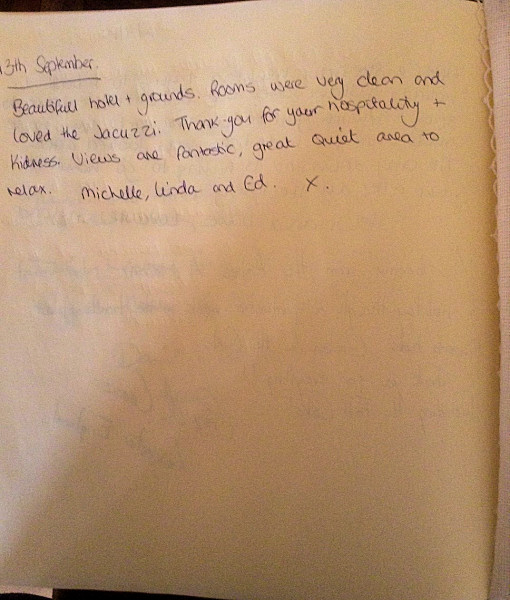 13th September.
Beautifull hotel + grounds. Rooms were very clean and
loved the Jacuzzi. Thank-you for your hospitality +
Kidness. Views are fantastic, great Quiet area to
relax. Michelle, Linda and Ed. X.